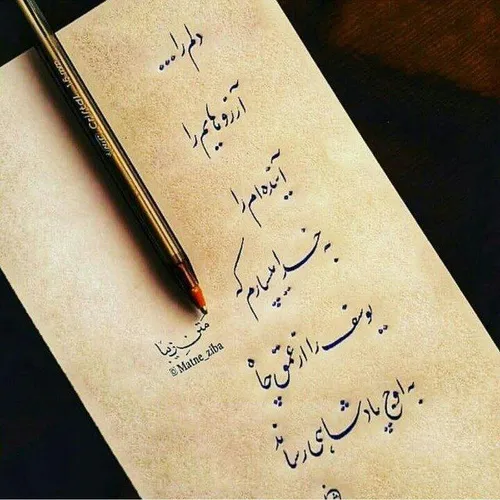 دلم را...
آرزوهایم را
آینده ام را
به خدا میسپارم که
یوسف را از عمق چاه
به اوج پادشاهی رساند
متن زیبا
© Matne_ziba